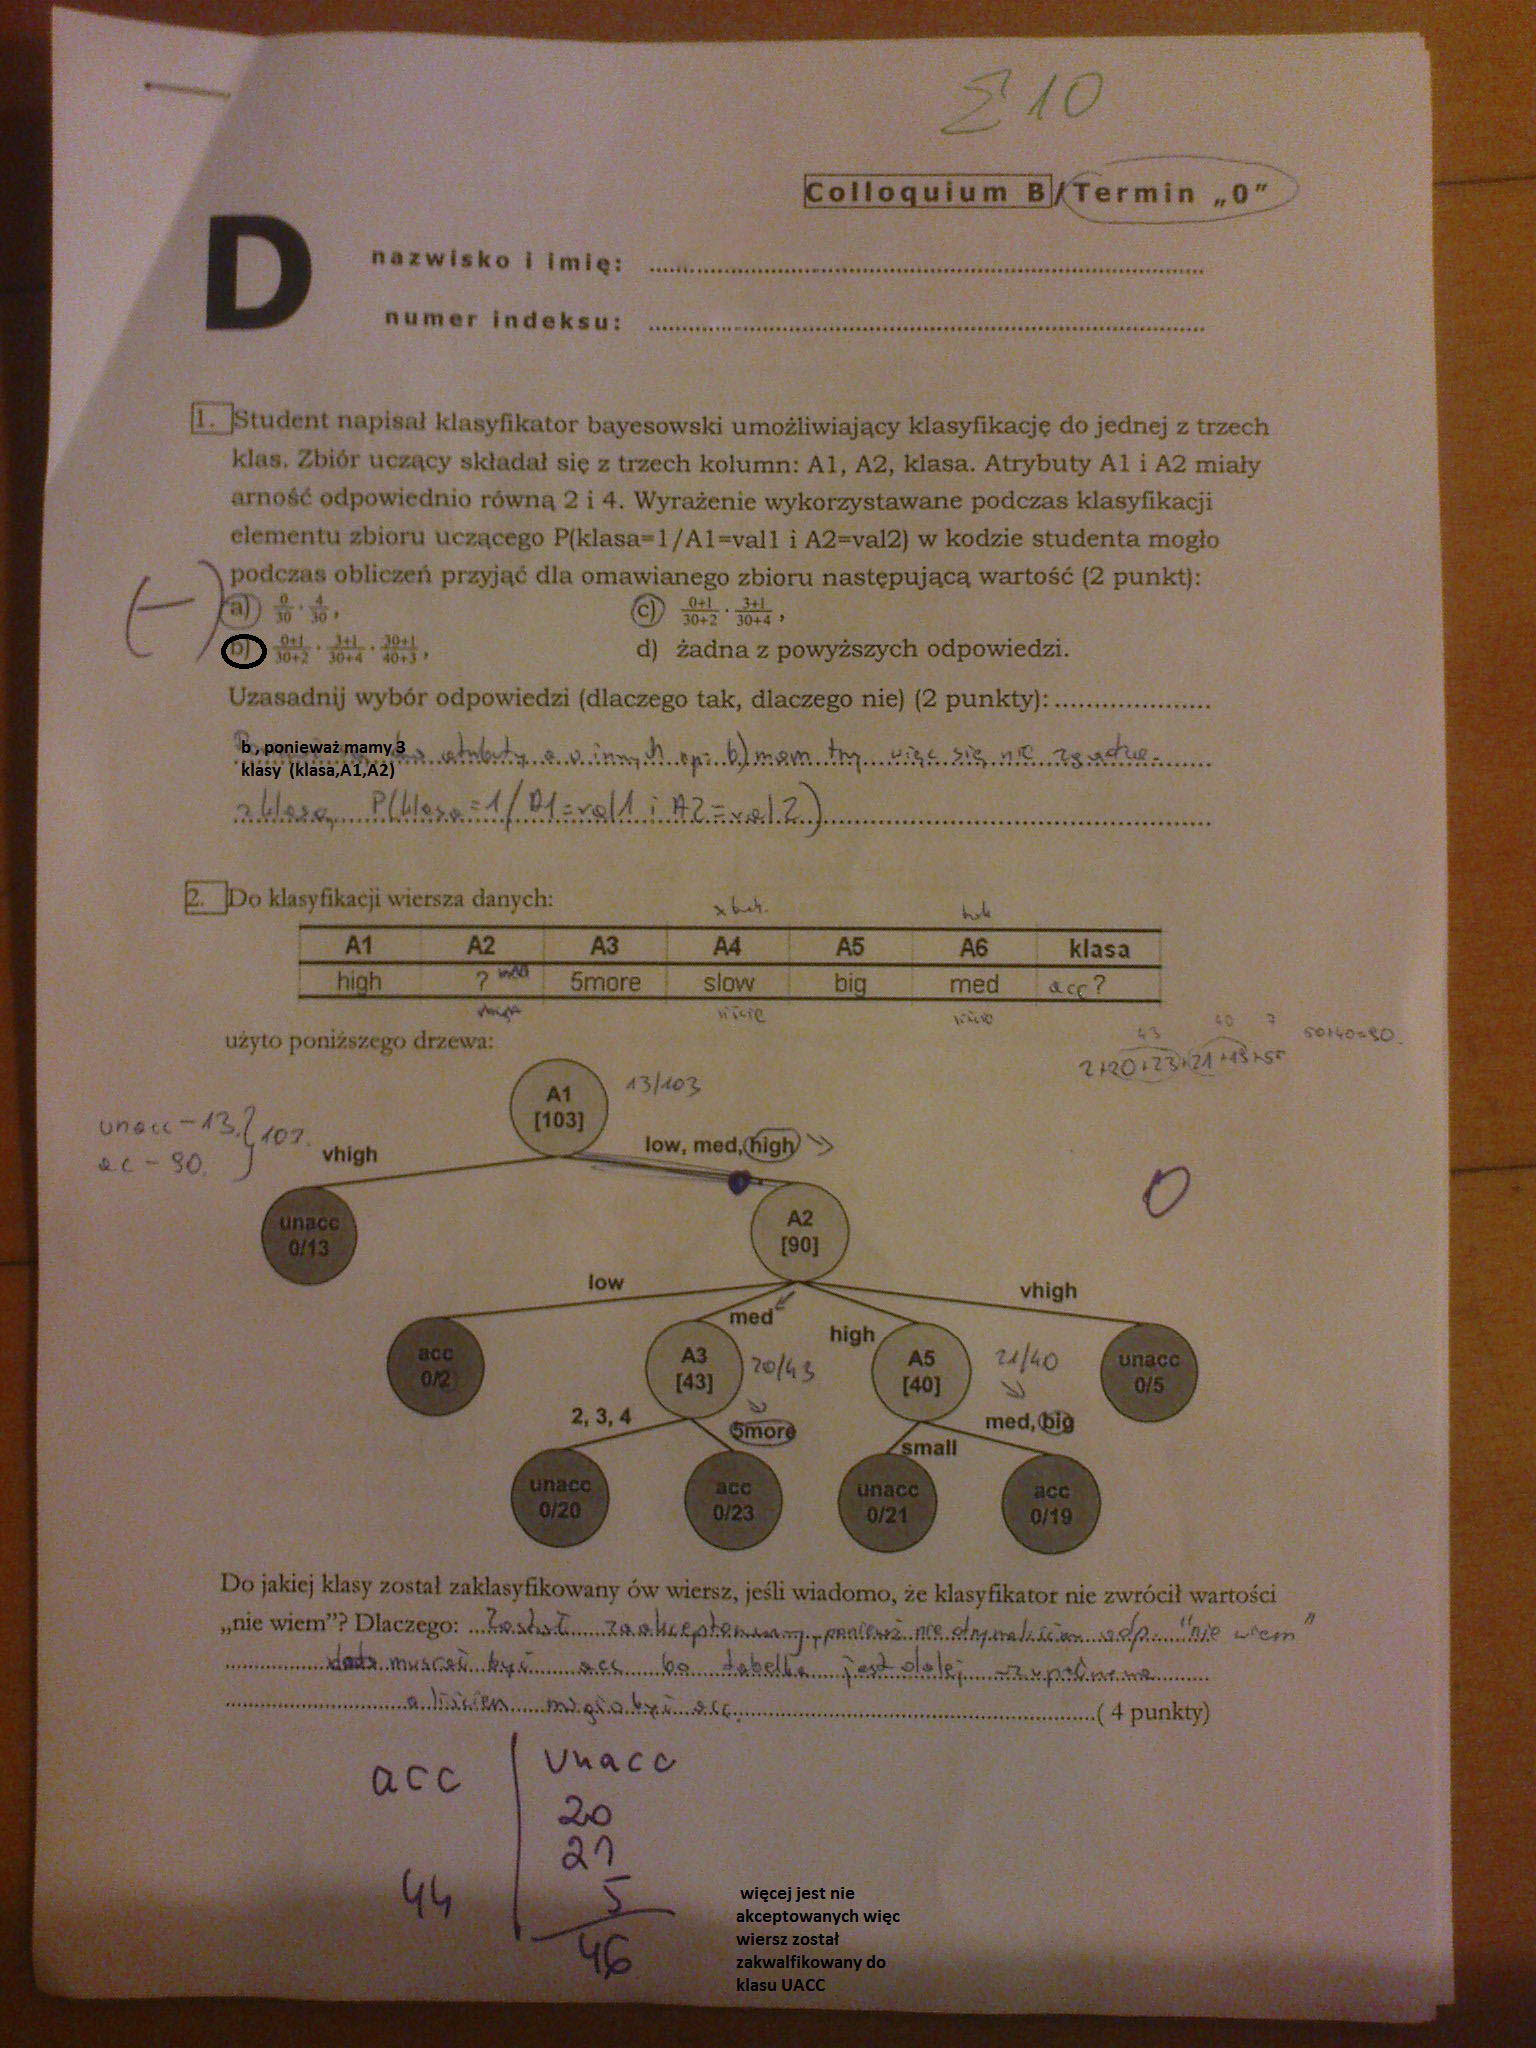 Σ 10
Colloquium B/Termin „0”
D
nazwisko i imię:
numer indeksu:
1. Student napisał klasyfikator bayesowski umożliwiający klasyfikację do jednej z trzech
klas. Zbiór uczący składał się z trzech kolumn: A1, A2, klasa. Atrybuty A1 i A2 miały
arność odpowiednio równą 2 i 4. Wyrażenie wykorzystawane podczas klasyfikacji
elementu zbioru uczącego P(klasa=1/A1=val1 i A2=val2) w kodzie studenta mogło
podczas obliczeń przyjąć dla omawianego zbioru następującą wartość (2 punkt):
(-)
a) 0/30 · 4/30, c) 0+1/30+2 · 3+1/30+4,
b) 0+1/30+2 · 3+1/30+4 · 30+1/40+3, d) żadna z powyższych odpowiedzi.
Uzasadnij wybór odpowiedzi (dlaczego tak, dlaczego nie) (2 punkty):
b , ponieważ mamy 3
klasy (klasa,A1,A2)
atrybuty a w innych np. b) mam trzy więc się nie zgadza
z klasą P(klasa=1/A1=val1 i A2=val2)
2. Do klasyfikacji wiersza danych:
A1 A2 A3 A4 A5 A6 klasa
high ? 5more slow big med acc ?
użyto poniższego drzewa:
43 40 7
2+20+23+21+19+5 50+40=90.
A1
[103]
13/103
unacc - 13. } 103.
ac - 90.
vhigh
low, med, high
unacc
0/13
A2
[90]
0
low
med
high
vhigh
acc
0/2
A3
[43]
20/43
A5
[40]
21/40
unacc
0/5
2, 3, 4
5more
small
med, big
unacc
0/20
acc
0/23
unacc
0/21
acc
0/19
Do jakiej klasy został zaklasyfikowany ów wiersz, jeśli wiadomo, że klasyfikator nie zwrócił wartości
„nie wiem”? Dlaczego: Został zaakceptowany, ponieważ nie otrzymaliśmy odp. "nie wiem"
musiał być acc bo tabelka jest dalej
a liściem mogło być acc.
( 4 punkty)
acc | unacc
20
21
44 5
46
więcej jest nie
akceptowanych więc
wiersz został
zakwalfikowany do
klasu UACC